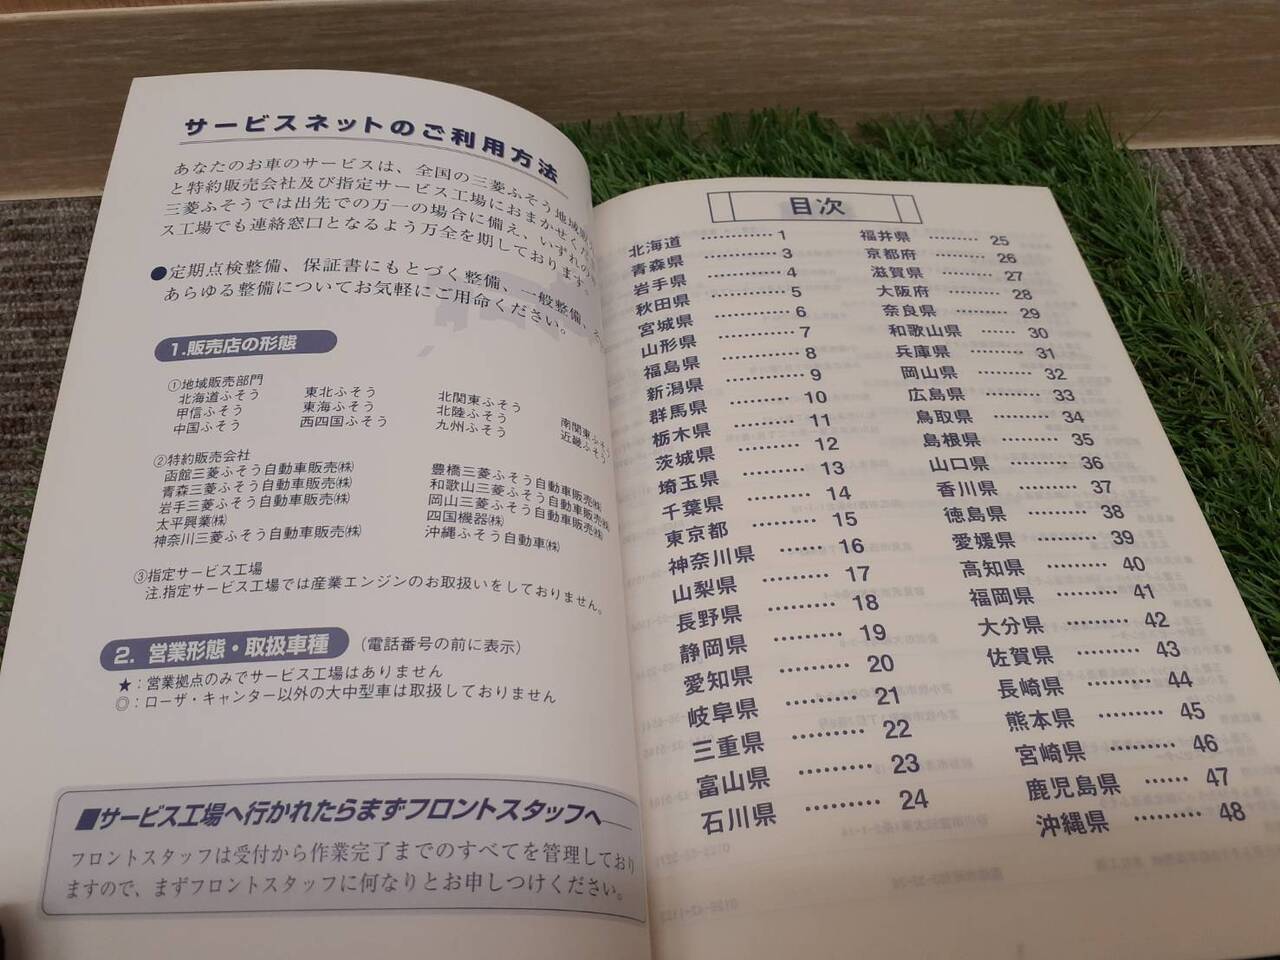 サービスネットのご利用方法
あなたのお車のサービスは、全国の三菱ふそう地域
と特約販売会社及び指定サービス工場におまかせくだ
三菱ふそうでは出先での万一の場合に備え、いずれの
ス工場でも連絡窓口となるよう万全を期しております。
●定期点検整備、保証書にもとづく整備、一般整備、
あらゆる整備についてお気軽にご用命ください。
1.販売店の形態
①地域販売部門
北海道ふそう 東北ふそう 北関東ふそう 南関東ふそう
甲信ふそう 東海ふそう 北陸ふそう 近畿ふそう
中国ふそう 西四国ふそう 九州ふそう
②特約販売会社
函館三菱ふそう自動車販売㈱ 豊橋三菱ふそう自動車販売㈱
青森三菱ふそう自動車販売㈱ 和歌山三菱ふそう自動車販売㈱
岩手三菱ふそう自動車販売㈱ 岡山三菱ふそう自動車販売㈱
太平興業㈱ 四国機器㈱
神奈川三菱ふそう自動車販売㈱ 沖縄ふそう自動車㈱
③指定サービス工場
注.指定サービス工場では産業エンジンのお取扱いをしておりません。
2. 営業形態・取扱車種 (電話番号の前に表示)
★：営業拠点のみでサービス工場はありません
◎：ローザ・キャンター以外の大中型車は取扱しておりません
■サービス工場へ行かれたらまずフロントスタッフへ
フロントスタッフは受付から作業完了までのすべてを管理しており
ますので、まずフロントスタッフに何なりとお申しつけください。
目次
北海道 ………… 1
青森県 ………… 3
岩手県 ………… 4
秋田県 ………… 5
宮城県 ………… 6
山形県 ………… 7
福島県 ………… 8
新潟県 ………… 9
群馬県 ……… 10
栃木県 ……… 11
茨城県 ……… 12
埼玉県 ……… 13
千葉県 ……… 14
東京都 ……… 15
神奈川県 …… 16
山梨県 ……… 17
長野県 ……… 18
静岡県 ……… 19
愛知県 ……… 20
岐阜県 ……… 21
三重県 ……… 22
富山県 ……… 23
石川県 ……… 24
福井県 ……… 25
京都府 ……… 26
滋賀県 ……… 27
大阪府 ……… 28
奈良県 ……… 29
和歌山県 …… 30
兵庫県 ……… 31
岡山県 ……… 32
広島県 ……… 33
鳥取県 ……… 34
島根県 ……… 35
山口県 ……… 36
香川県 ……… 37
徳島県 ……… 38
愛媛県 ……… 39
高知県 ……… 40
福岡県 ……… 41
大分県 ……… 42
佐賀県 ……… 43
長崎県 ……… 44
熊本県 ……… 45
宮崎県 ……… 46
鹿児島県 …… 47
沖縄県 ……… 48